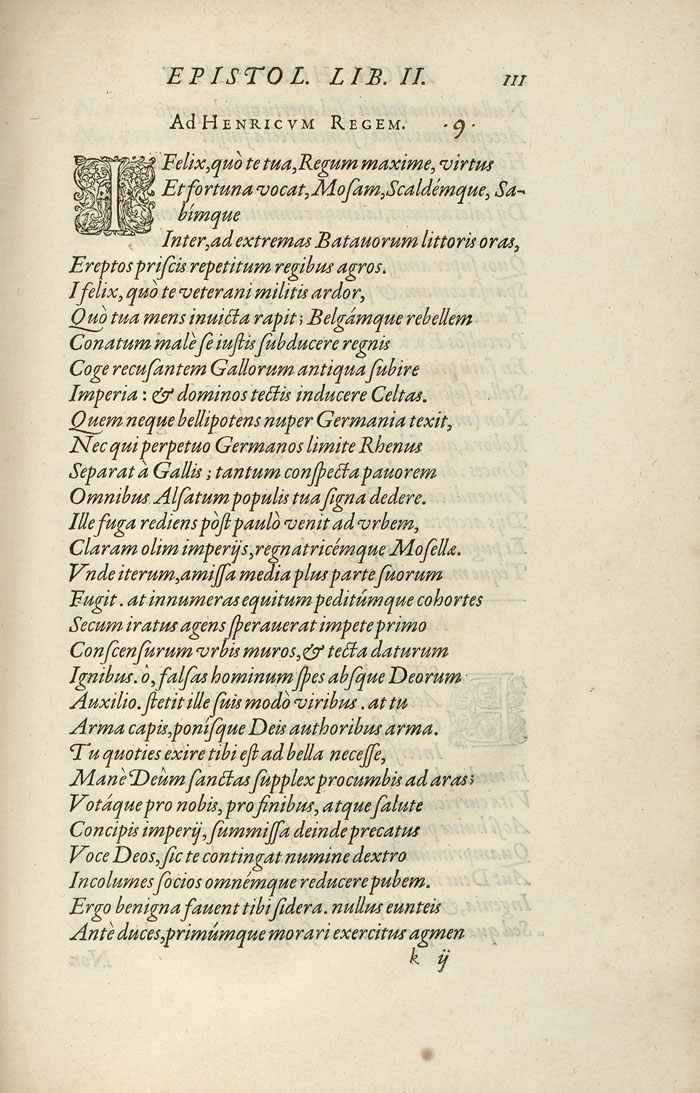 EPISTOL. LIB. II. 111
Ad HENRICVM REGEM. ·9·
I Felix, quò te tua, Regum maxime, virtus
Et fortuna vocat, Mosam, Scaldémque, Sa-
bímque
Inter, ad extremas Batauorum littoris oras,
Ereptos priscis repetitum regibus agros.
I felix, quò te veterani militis ardor,
Quò tua mens inuicta rapit; Belgámque rebellem
Conatum malè se iustis subducere regnis
Coge recusantem Gallorum antiqua subire
Imperia: & dominos tectis inducere Celtas.
Quem neque bellipotens nuper Germania texit,
Nec qui perpetuo Germanos limite Rhenus
Separat à Gallis; tantum conspecta pauorem
Omnibus Alsatum populis tua signa dedere.
Ille fuga rediens pòst paulò venit ad vrbem,
Claram olim imperijs, regnatricémque Mosellæ.
Vnde iterum, amissa media plus parte suorum
Fugit. at innumeras equitum peditúmque cohortes
Secum iratus agens sperauerat impete primo
Conscensurum vrbis muros, & tecta daturum
Ignibus. ò, falsas hominum spes absque Deorum
Auxilio. stetit ille suis modò viribus. at tu
Arma capis, ponísque Deis authoribus arma.
Tu quoties exire tibi est ad bella necesse,
Manè Deûm sanctas supplex procumbis ad aras;
Votáque pro nobis, pro finibus, atque salute
Concipis imperij, summissa deinde precatus
Voce Deos, sic te contingat numine dextro
Incolumes socios omnémque reducere pubem.
Ergo benigna fauent tibi sidera. nullus eunteis
Antè duces, primúmque morari exercitus agmen
k ij